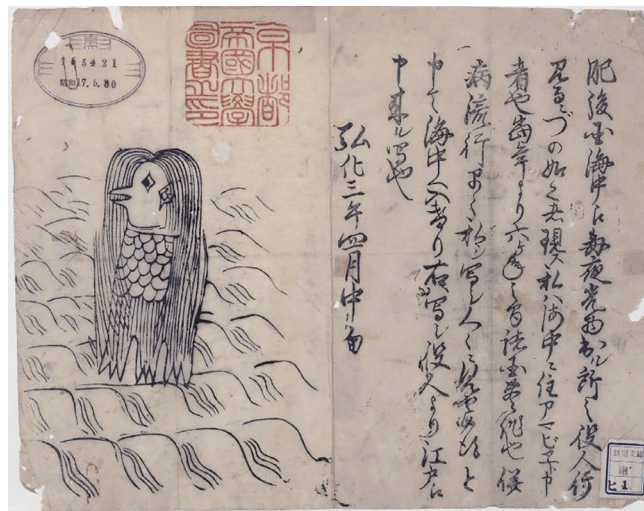 肥後国海中え毎夜光物出ル所之役人行
見るニづの如く者現ス私ハ海中ニ住アマビヱト申
者也当年より六ヶ年之間諸国豊作也併
病流行早々私シ写シ人々ニ見セ候得と
申て海中へ入けり右写シ役人より江戸え
申来ル写也
弘化三年四月中旬
京都
帝國大學
圖書之印
165421
新聞文庫
繪
ヒ 1